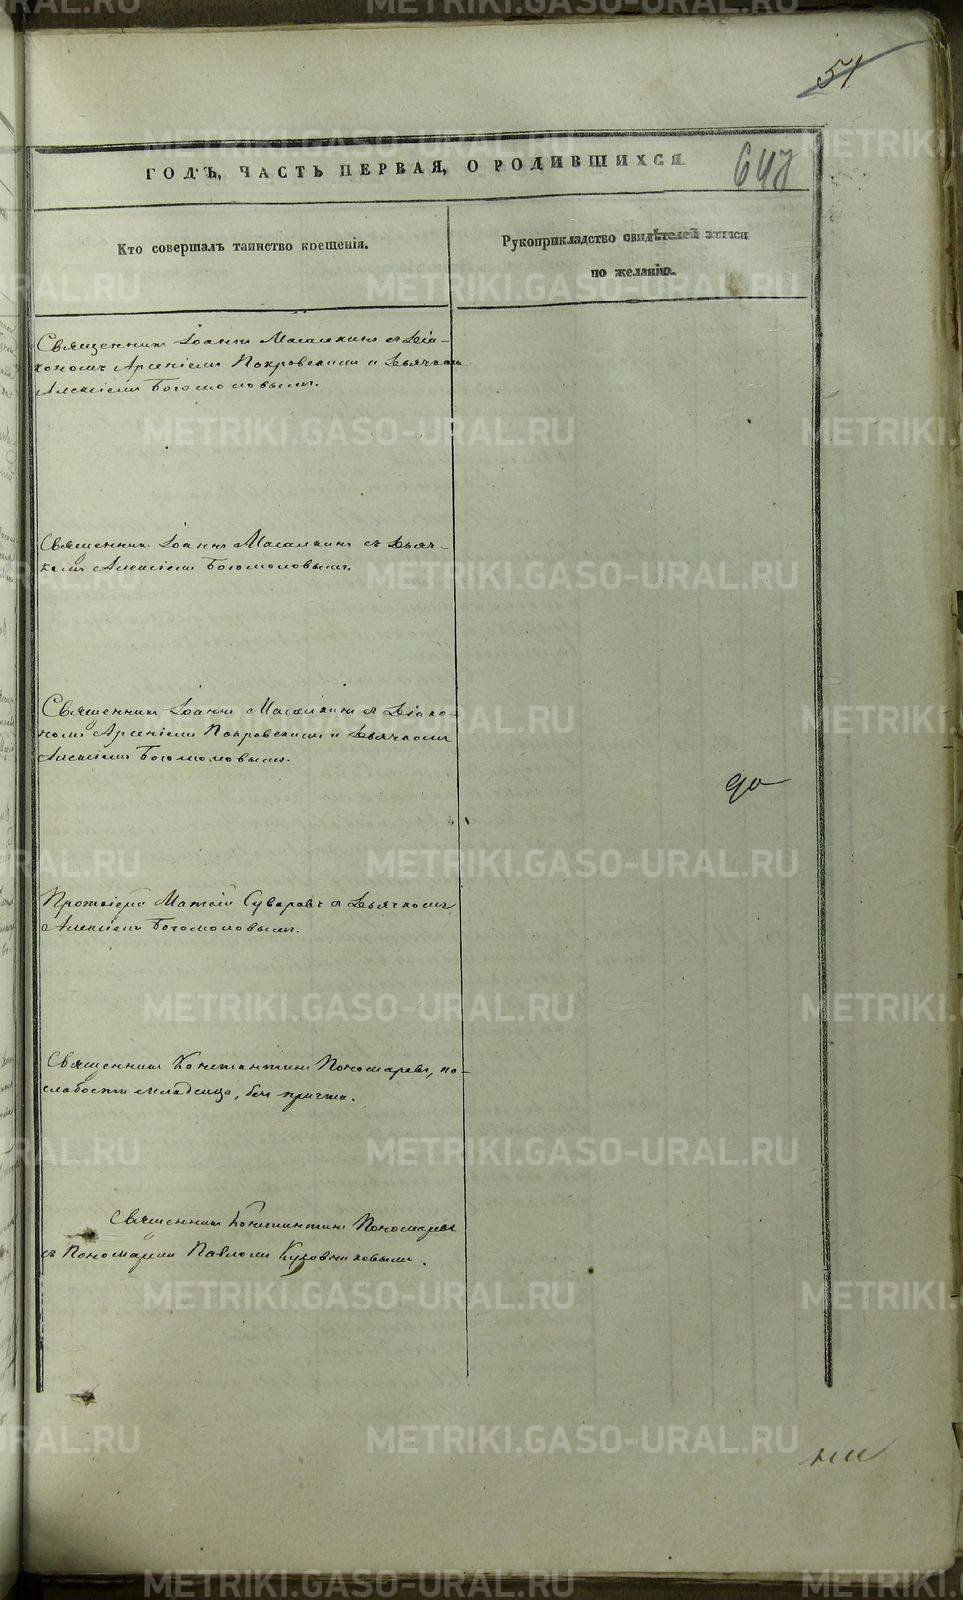 51
ГОДЪ, ЧАСТЬ ПЕРВАЯ, О РОДИВШИХСЯ.
Кто совершалъ таинство крещенія.
Рукоприкладство свидѣтелей записи
по желанію.
Священникъ Іоаннъ Масалкинъ съ Діа-
кономъ Арсеніемъ Покровскимъ и Дьячкомъ
Алексіемъ Богомоловымъ.
Священникъ Іоаннъ Масалкинъ съ Дьяч-
комъ Алексіемъ Богомоловымъ.
Священникъ Іоаннъ Масалкинъ съ Діако-
номъ Арсеніемъ Покровскимъ и Дьячкомъ
Алексіемъ Богомоловымъ.
Протоіерей Матѳій Суваровъ съ Дьячкомъ
Алексіемъ Богомоловымъ.
Священникъ Константинъ Пономаревъ, по
слабости младенца, безъ причта.
Священникъ Константинъ Пономаревъ
съ Пономаремъ Павломъ Кузовниковымъ.
METRIKI.GASO-URAL.RU